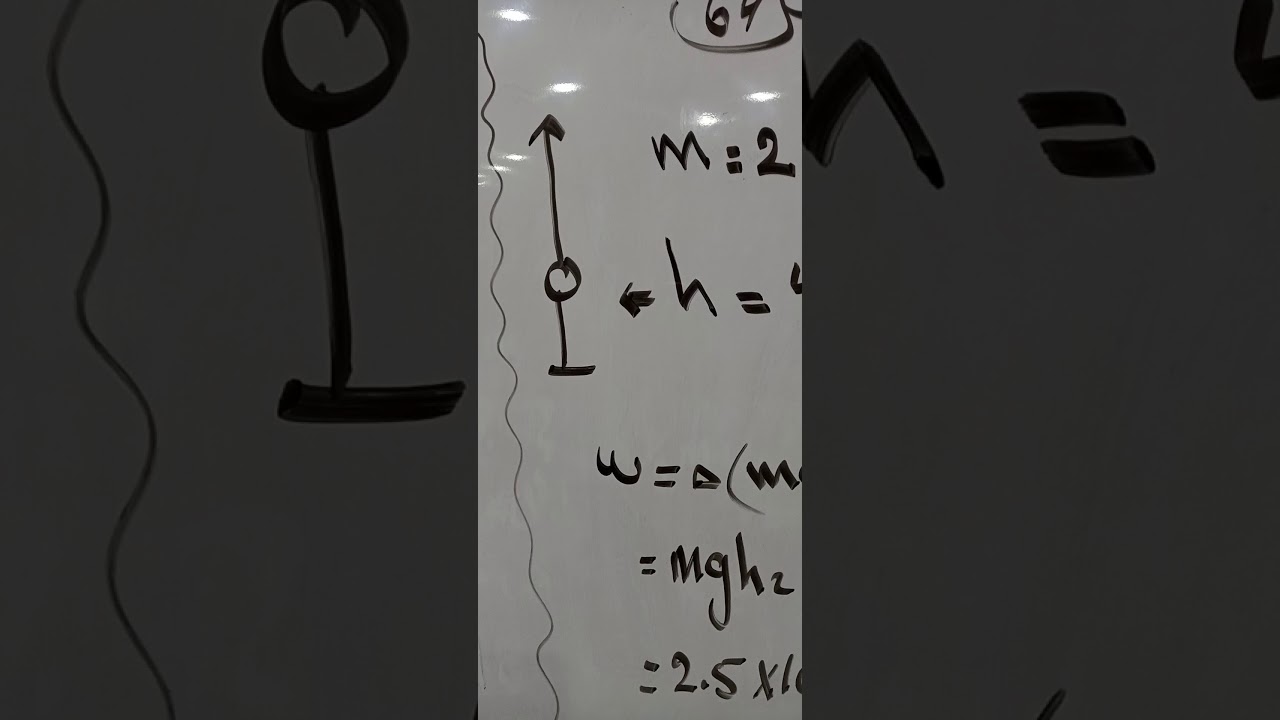 64
m = 2
← h =
w = Δ(m
= mgh₂
= 2.5 x 10